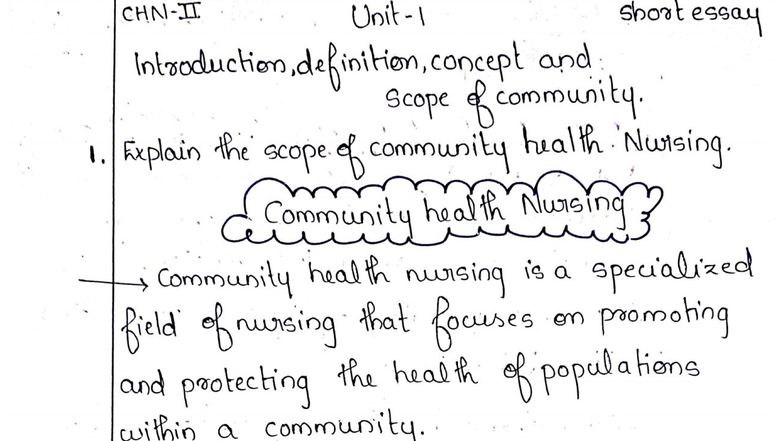 CHN-II Unit-1 short essay
Introduction, definition, concept and
scope of community.
1. Explain the scope of community health Nursing.
Community health Nursing
→ Community health nursing is a specialized
field of nursing that focuses on promoting
and protecting the health of populations
within a community.